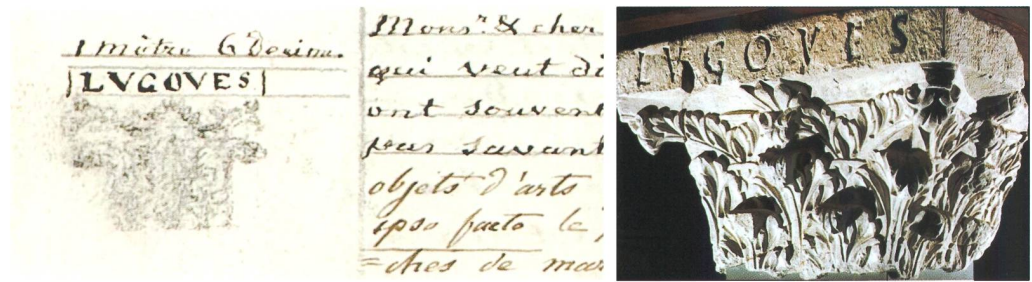 1 mètre 6 Decim.
LVGOVES
Monsr. & cher
qui veut di
ont souvent
pas savant
objets d'arts
ipso facto le
=ches de mar
LVGOVES